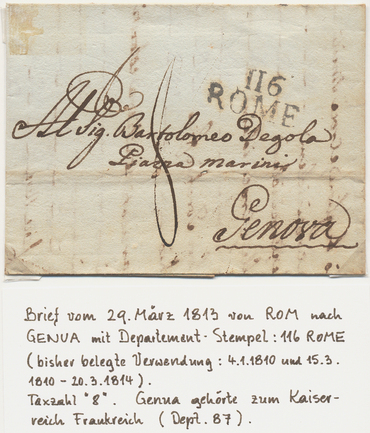 116
ROME
Al Sig. Bartolomeo Degola
Piazza marini
8
Genova
Brief vom 29. März 1813 von ROM nach
GENUA mit Departement-Stempel: 116 ROME
(bisher belegte Verwendung: 4.1.1810 und 15.3.
1810 - 20.3.1814).
Taxzahl "8". Genua gehörte zum Kaiser-
reich Frankreich (Dept. 87).